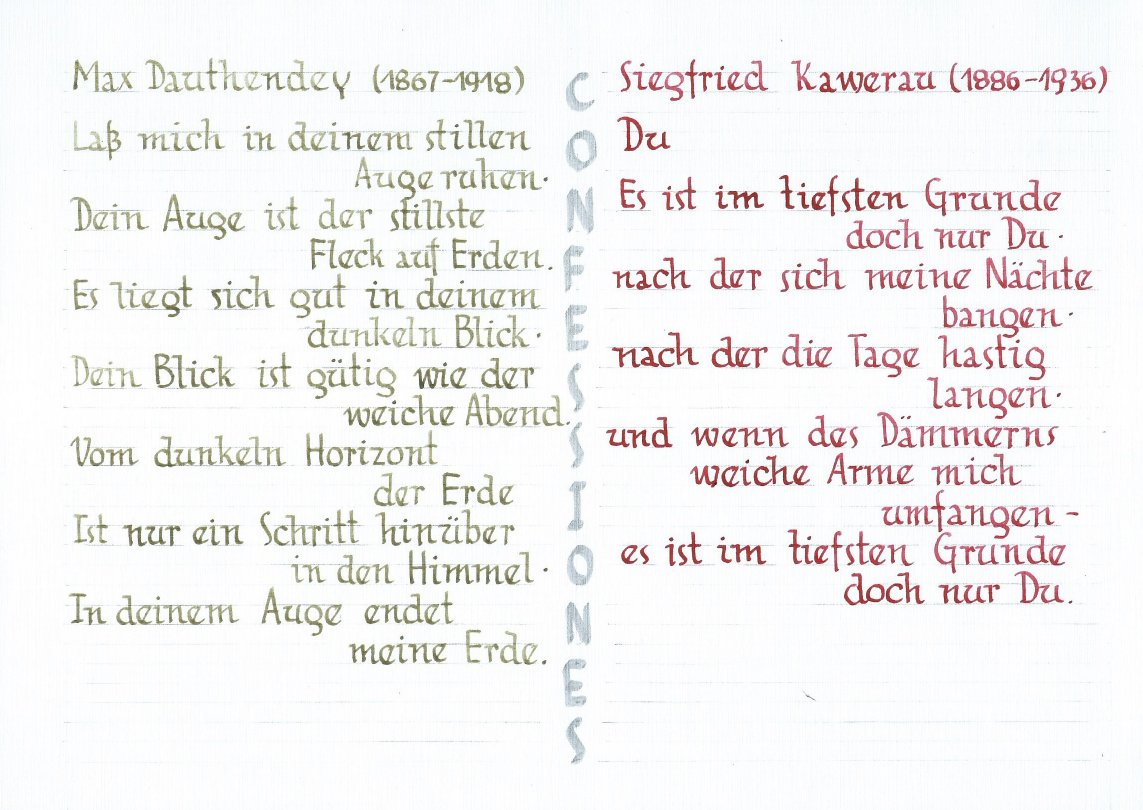 Max Dauthendey (1867-1918)
Laß mich in deinem stillen
Auge ruhen·
Dein Auge ist der stillste
Fleck auf Erden.
Es liegt sich gut in deinem
dunkeln Blick·
Dein Blick ist gütig wie der
weiche Abend.
Vom dunkeln Horizont
der Erde
Ist nur ein Schritt hinüber
in den Himmel·
In deinem Auge endet
meine Erde.
CONFESSIONES
Siegfried Kawerau (1886-1936)
Du
Es ist im tiefsten Grunde
doch nur Du·
nach der sich meine Nächte
bangen·
nach der die Tage hastig
langen·
und wenn des Dämmerns
weiche Arme mich
umfangen-
es ist im tiefsten Grunde
doch nur Du.